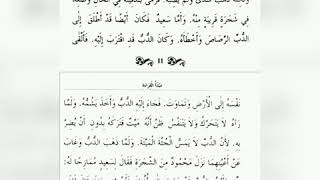 فِي شَجَرَةٍ قَرِيبَةٍ مِنْهُ. وَأَمَّا سَعِيدٌ فَكَانَ أَيْضًا قَدْ أَطْلَقَ إِلَى
الدُّبِّ الرَّصَاصَ وَأَخْطَأَهُ. وَكَانَ الدُّبُّ قَدِ اقْتَرَبَ إِلَيْهِ. فَأَلْقَى
١١
مَبْدَأُ الْقِرَاءَةِ
نَفْسَهُ إِلَى الْأَرْضِ وَتَمَاوَتَ. فَجَاءَ إِلَيْهِ الدُّبُّ وَأَخَذَ يَشُمُّهُ. وَلَمَّا
رَآهُ لَا يَتَحَرَّكُ وَلَا يَتَنَفَّسُ ظَنَّ أَنَّهُ مَيِّتٌ فَتَرَكَهُ بِدُونِ أَنْ يَضُرَّ
بِهِ. لِأَنَّ الدُّبَّ لَا يَمَسُّ الْجُثَّةَ الْمَيِّتَةَ. وَلَمَّا ذَهَبَ الدُّبُّ وَغَابَ
عَنْ أَعْيُنِهِمَا نَزَلَ مَحْمُودٌ مِنَ الشَّجَرَةِ فَقَالَ لِسَعِيدٍ مُمَازِحًا لَهُ